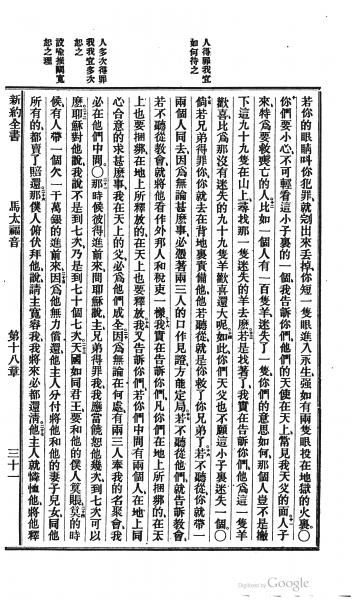 人得罪我宜
如何待之
人多次得罪
我我宜多次
恕之
設喻推闡寬
恕之理
若你的眼睛叫你犯罪就剜出來丟掉你只一隻眼進入永生强如有兩隻眼投在地獄的火裏〇
你們要小心不可輕看這小子裏的一個我告訴你們他們的天使在天上常見我天父的面人子
來特爲要救喪亡的人比如人有一百隻羊迷失了一隻你們的意思如何那個人豈不是撇
下這九十九隻在山上尋找那一隻迷失的羊去麽若是找著了我實在告訴你們他爲這一隻羊
歡喜比爲那沒有迷失的九十九隻羊歡喜還大呢如此你們天父也不願這小子裏迷失一個〇
倘若兄弟得罪你你就去在背地裏責備他他若聽從就是你救了你兄弟了若不聽從你就帶一
兩個人同去因爲無論甚麽事必憑著兩三人的口作見證方能定局若不聽從他們就告訴教會
若不聽從教會就將他看作外邦人和稅吏一樣我實在告訴你們凡你們在地上所捆綁的在天
上也要捆綁在地上所釋放的在天上也要釋放我又告訴你們若你們中間有兩個人在地上同
心合意的求甚麽事我在天上的父必爲他們成全因爲無論在何處有兩三人奉我的名聚會我
必在他們中間〇那時候彼得進前來問耶穌說主兄弟得罪我我應當饒恕他幾次到七次可以
麽耶穌對他說我說不是到七次乃是到七十個七次天國如同君王要和他的僕人算賬算的時
候有人帶一個欠一千萬銀的進前來因爲他無力償還他主人分付將他和他的妻子兒女同他
所有的都賣了賠還那僕人俯伏拜他說請主寬容我我將來必都還清他主人就憐恤他將他釋
新約全書 馬太福音 第十八章 三十一
Digitized by Google